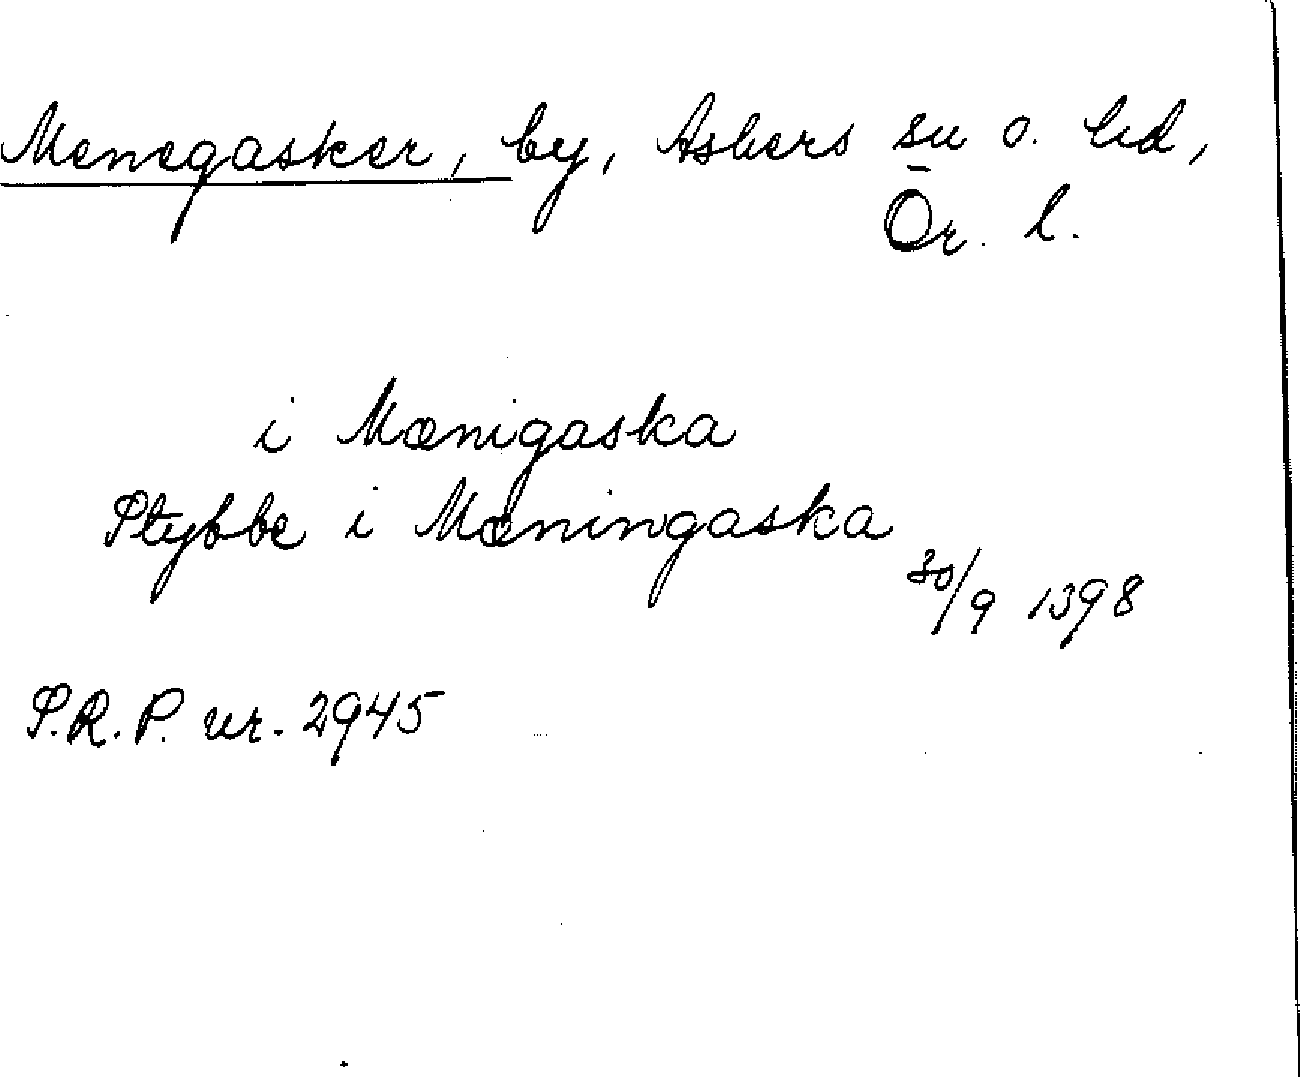 Menegasker, by, Askers sn o. hd,
Ör. l.
i Mænigaska
Stybbe i Mæningaska
30/9 1398
S.R.P. nr. 2945